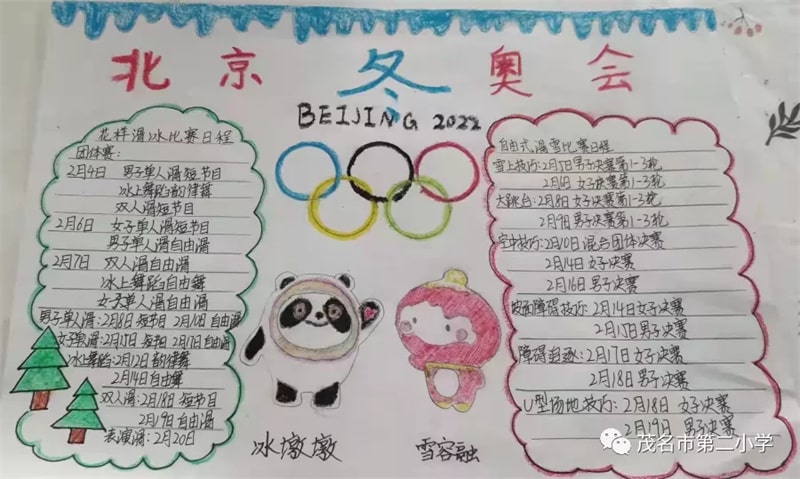 北京冬奥会
BEIJING 2022
花样滑冰比赛日程
团体赛:
2月4日 男子单人滑短节目
冰上舞蹈韵律舞
双人滑短节目
2月6日 女子单人滑短节目
男子单人滑自由滑
2月7日 双人滑自由滑
冰上舞蹈自由舞
女子单人滑自由滑
男子单人滑:2月8日 短节目 2月10日 自由滑
女子单滑:2月15日 短节目 2月17日 自由滑
冰上舞蹈:2月12日 韵律舞
2月14日 自由舞
双人滑:2月18日 短节目
2月19日 自由滑
表演滑:2月20日
冰墩墩
雪容融
自由式滑雪比赛日程
雪上技巧:2月5日男子决赛第1-3轮
2月6日 女子决赛第1-3轮
大跳台:2月8日 女子决赛第1-3轮
2月9日 男子决赛第1-3轮
空中技巧:2月10日 混合团体决赛
2月14日 女子决赛
2月16日 男子决赛
坡面障碍技巧:2月14日女子决赛
2月15日男子决赛
障碍追逐:2月17日 女子决赛
2月18日 男子决赛
U型场地技巧:2月18日 女子决赛
2月19日 男子决赛
茂名市第二小学